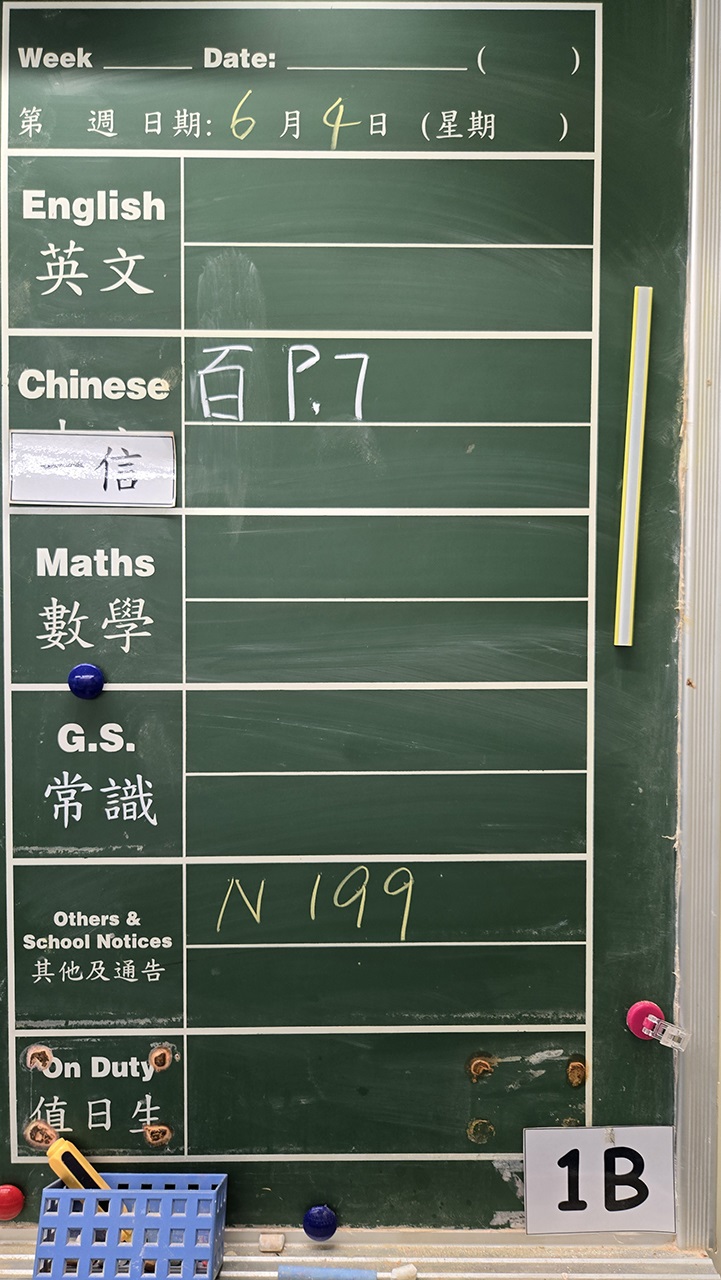 Week ______ Date: ____________ (　　)
第　週 日期: 6 月 4 日 (星期　　)
English
英文
Chinese 百 P.7
信
Maths
數學
G.S.
常識
Others & N 199
School Notices
其他及通告
On Duty
值日生
1B